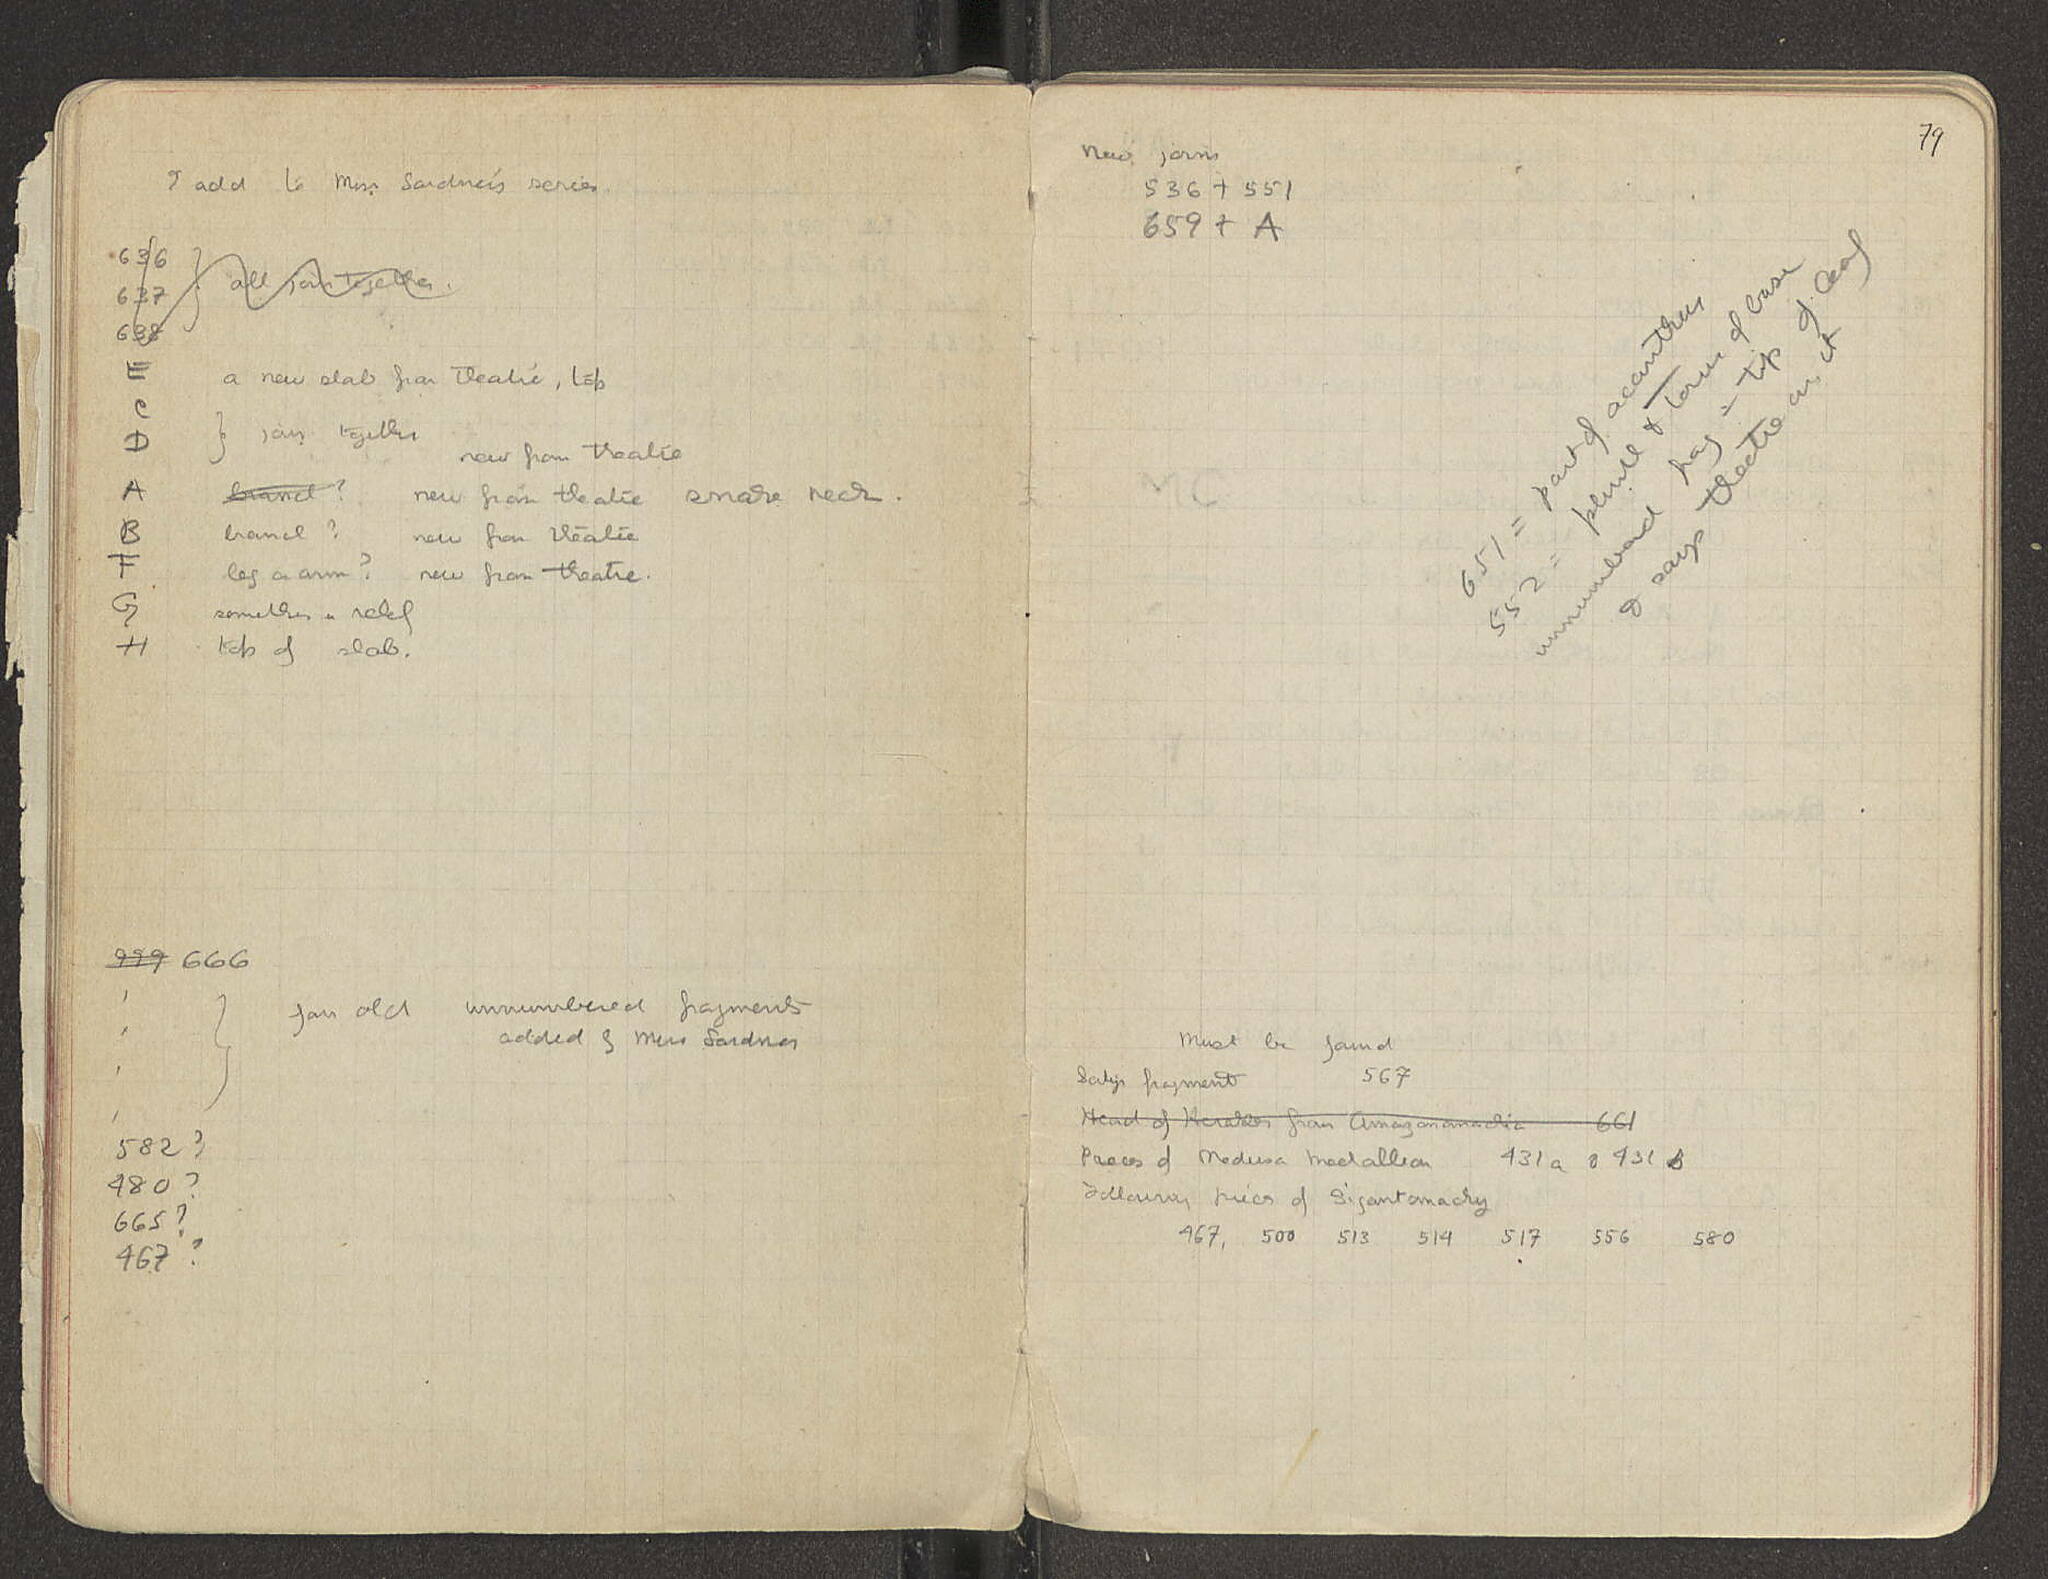 I add to Miss Gardner's series.
636
637
638
all join together.
E a new slab from theatre, top
C
D
join together
new from theatre
A branch? new from theatre snake neck.
B branch? new from theatre
F leg or arm? new from theatre.
G something in relief
H top of slab.
999 666
four old unnumbered fragments
added by Miss Gardner
582?
480?
665?
467?
79
New joins
536 + 551
659 + A
651 = part of acanthus
552 = plinth & torus of base
unnumbered frag = tip of leaf
& says theatre on it
Must be found
Satyr fragment 567
Head of Herakles from Amazonomachia 661
Pieces of Medusa medallion 431a & 431b
Following pieces of Gigantomachy
467, 500 513 514 517 556 580